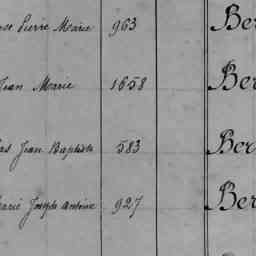 Pierre Marie 963 Ber
Jean Marie 1658 Ber
Jean Baptiste 583 Ber
Marie Joseph Antoine 927 Ber